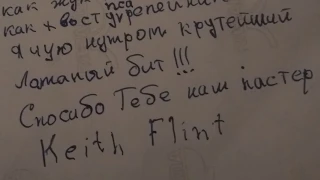 как жу пса
как хвост у репейни
я чую нутром крутейший
Латаный бит!!!
Спосибо Тебе наш пастер
Keith Flint